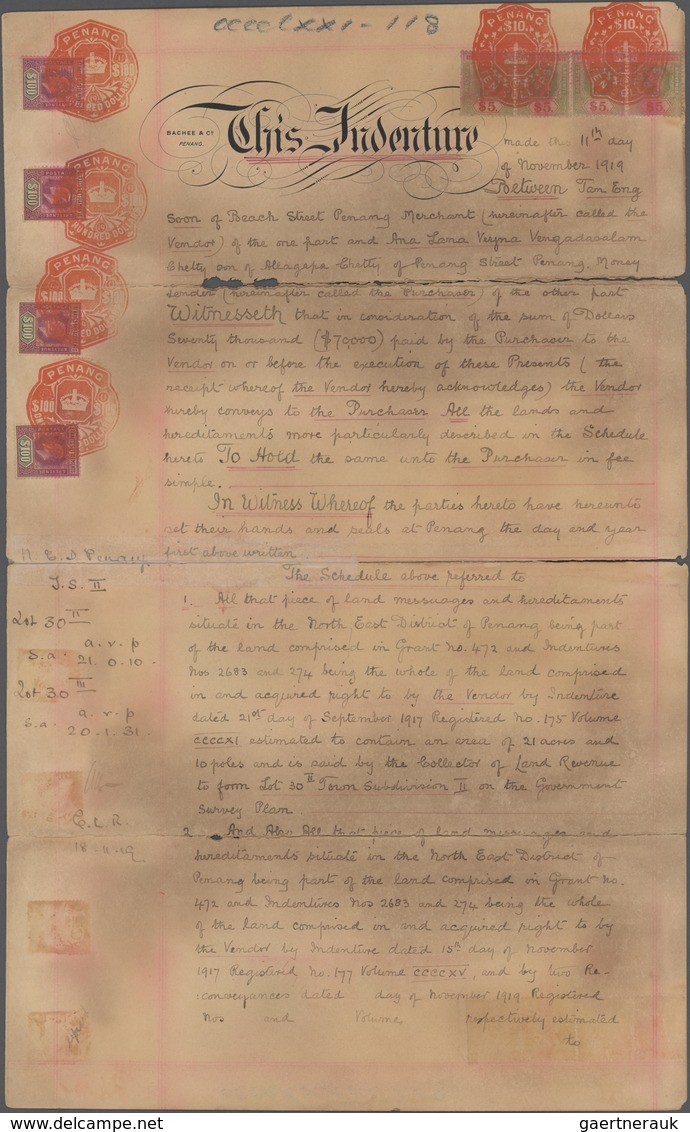 ccccLxxi - 118
PENANG
$100
HUNDRED DOLLARS
$100
PENANG
$100
HUNDRED DOLLARS
$100
PENANG
$100
$100
PENANG
$100
$100
PENANG
$10.
PENANG
$10.
$5.
$5.
$5.
$5.
BACHEE & Co
PENANG.
This Indenture
made this 11th day
of November 1919
Between Tan Eng
Soon of Beach Street Penang Merchant (hereinafter called the
Vendor) of the one part and Ana Lana Veyna Vengadasalam
Chetty son of Allagapa Chetty of Penang Street Penang, Money
Lender (hereinafter called the Purchaser) of the other part
Witnesseth that in consideration of the sum of Dollars
Seventy thousand ($70000) paid by the Purchaser to the
Vendor on or before the execution of these Presents (the
receipt whereof the Vendor hereby acknowledges) the Vendor
hereby conveys to the Purchaser All the lands and
hereditaments more particularly described in the Schedule
hereto To Hold the same unto the Purchaser in fee
simple.
In Witness Whereof the parties hereto have hereunto
set their hands and seals at Penang the day and year
first above written
The Schedule above referred to
1. All that piece of land messuages and hereditaments
situate in the North East District of Penang being part
of the land comprised in Grant No. 472 and Indentures
Nos 2683 and 274 being the whole of the land comprised
in and acquired right to by the Vendor by Indenture
dated 21st day of September 1917 Registered No. 175 Volume
CCCCXI estimated to contain an area of 21 acres and
10 poles and is said by the Collector of Land Revenue
to form Lot 30 II Town Subdivision II on the Government
Survey Plan
2. And Also All that piece of land messuages and
hereditaments situate in the North East District of
Penang being part of the land comprised in Grant No.
472 and Indentures Nos 2683 and 274 being the whole
of the land comprised in and acquired right to by
the Vendor by Indenture dated 15th day of November
1917 Registered No. 177 Volume CCCCXV, and by two Re-
:conveyances dated day of November 1919 Registered
Nos and Volume respectively estimated
to
N. E. D. Penang
T. S. II
Lot 30 II
a. r. p
S.a. 21. 0. 10.
Lot 30 III
a. r. p
S.a. 20. 1. 31.
C. L. R.
18.11.19
gaertnerauk